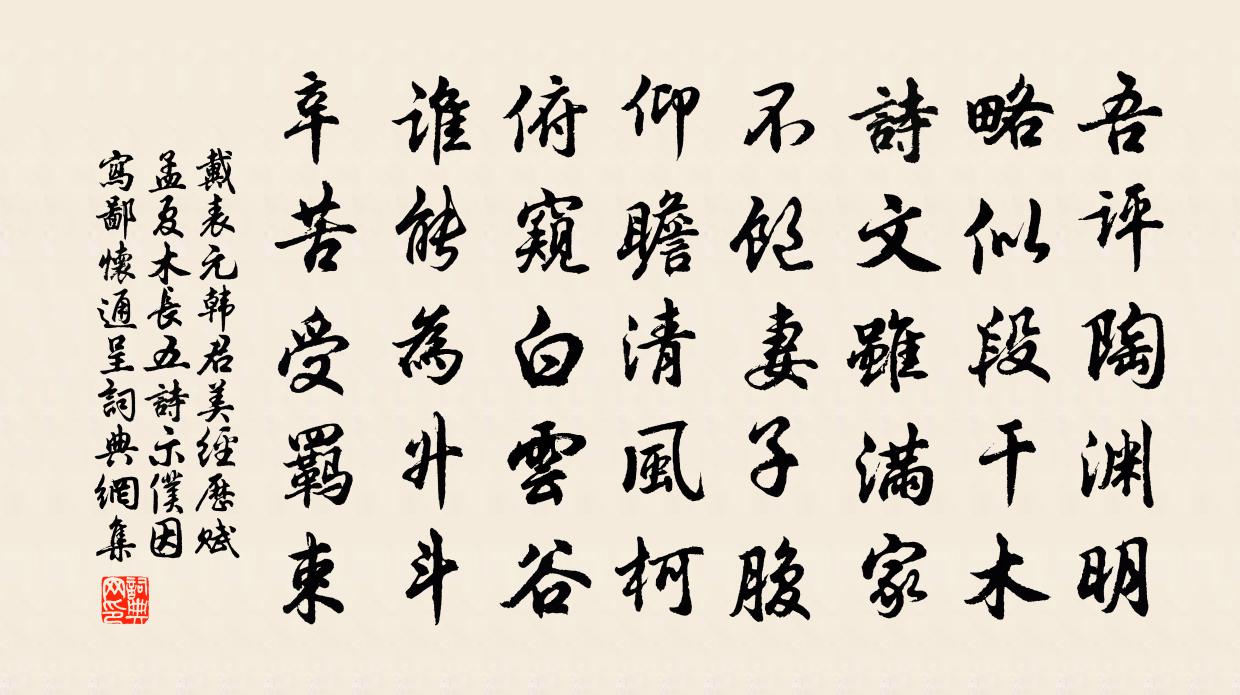 吾评陶渊明
略似段干木
詩文雖滿家
不飽妻子腹
仰瞻清風柯
俯窺白雲谷
谁能為升斗
辛苦受羈束
戴表元韩君美經歷赋
孟夏木長五詩示僕因
寫鄙懷通呈詞典網集
詞典
网印